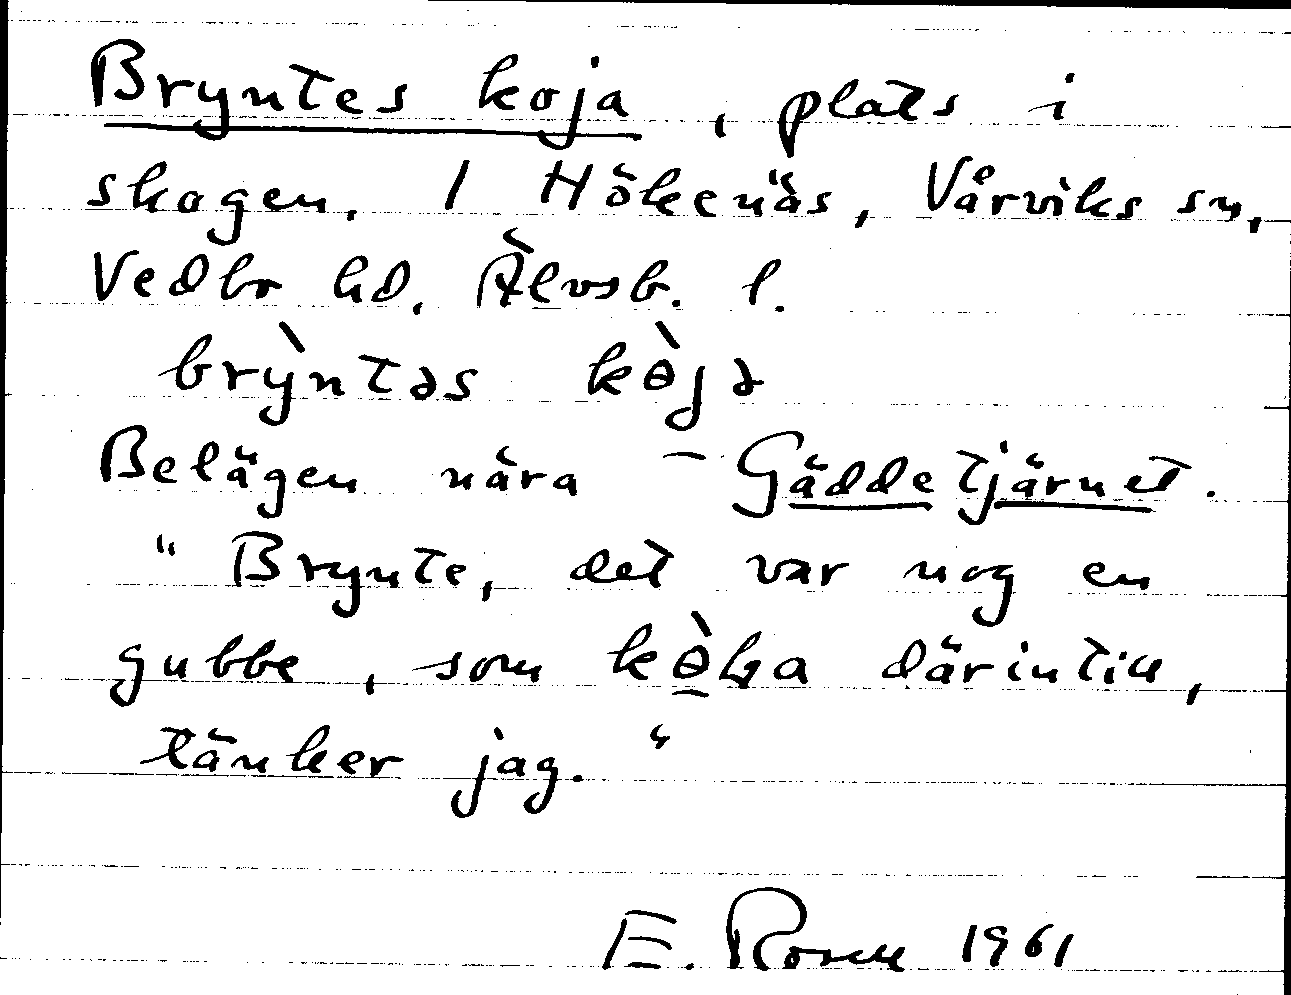 Bryntes koja, plats i
skogen. 1 Hökenäs, Vårviks sn,
Vedbo hd. Älvsb. l.
brỳntəs kө̀jə
Belägen nära – Gäddetjärnet.
"Brynte, det var nog en
gubbe, som
därintill,
tänker jag."
E. Rosell 1961